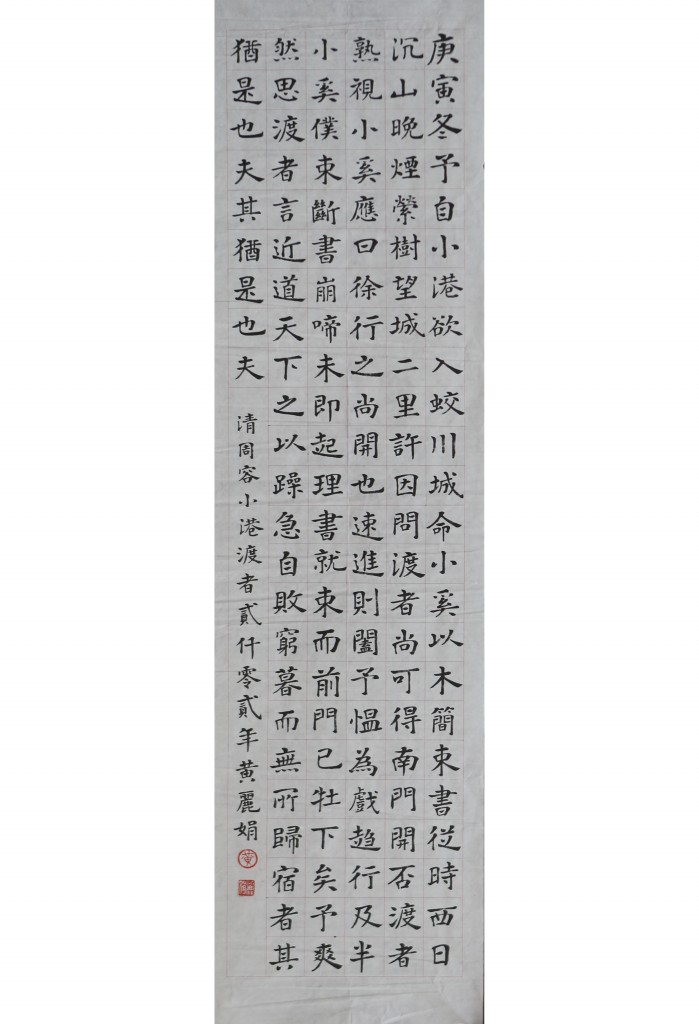 庚寅冬予自小港欲入蛟川城命小奚以木簡束書從時西日
沉山晚煙縈樹望城二里許因問渡者尚可得南門開否渡者
熟視小奚應曰徐行之尚開也速進則闔予愠為戲趋行及半
小奚僕束斷書崩啼未即起理書就束而前門已牡下矣予爽
然思渡者言近道天下之以躁急自敗窮暮而無所歸宿者其
猶是也夫其猶是也夫
清周容小港渡者貳仟零貳年黄麗娟